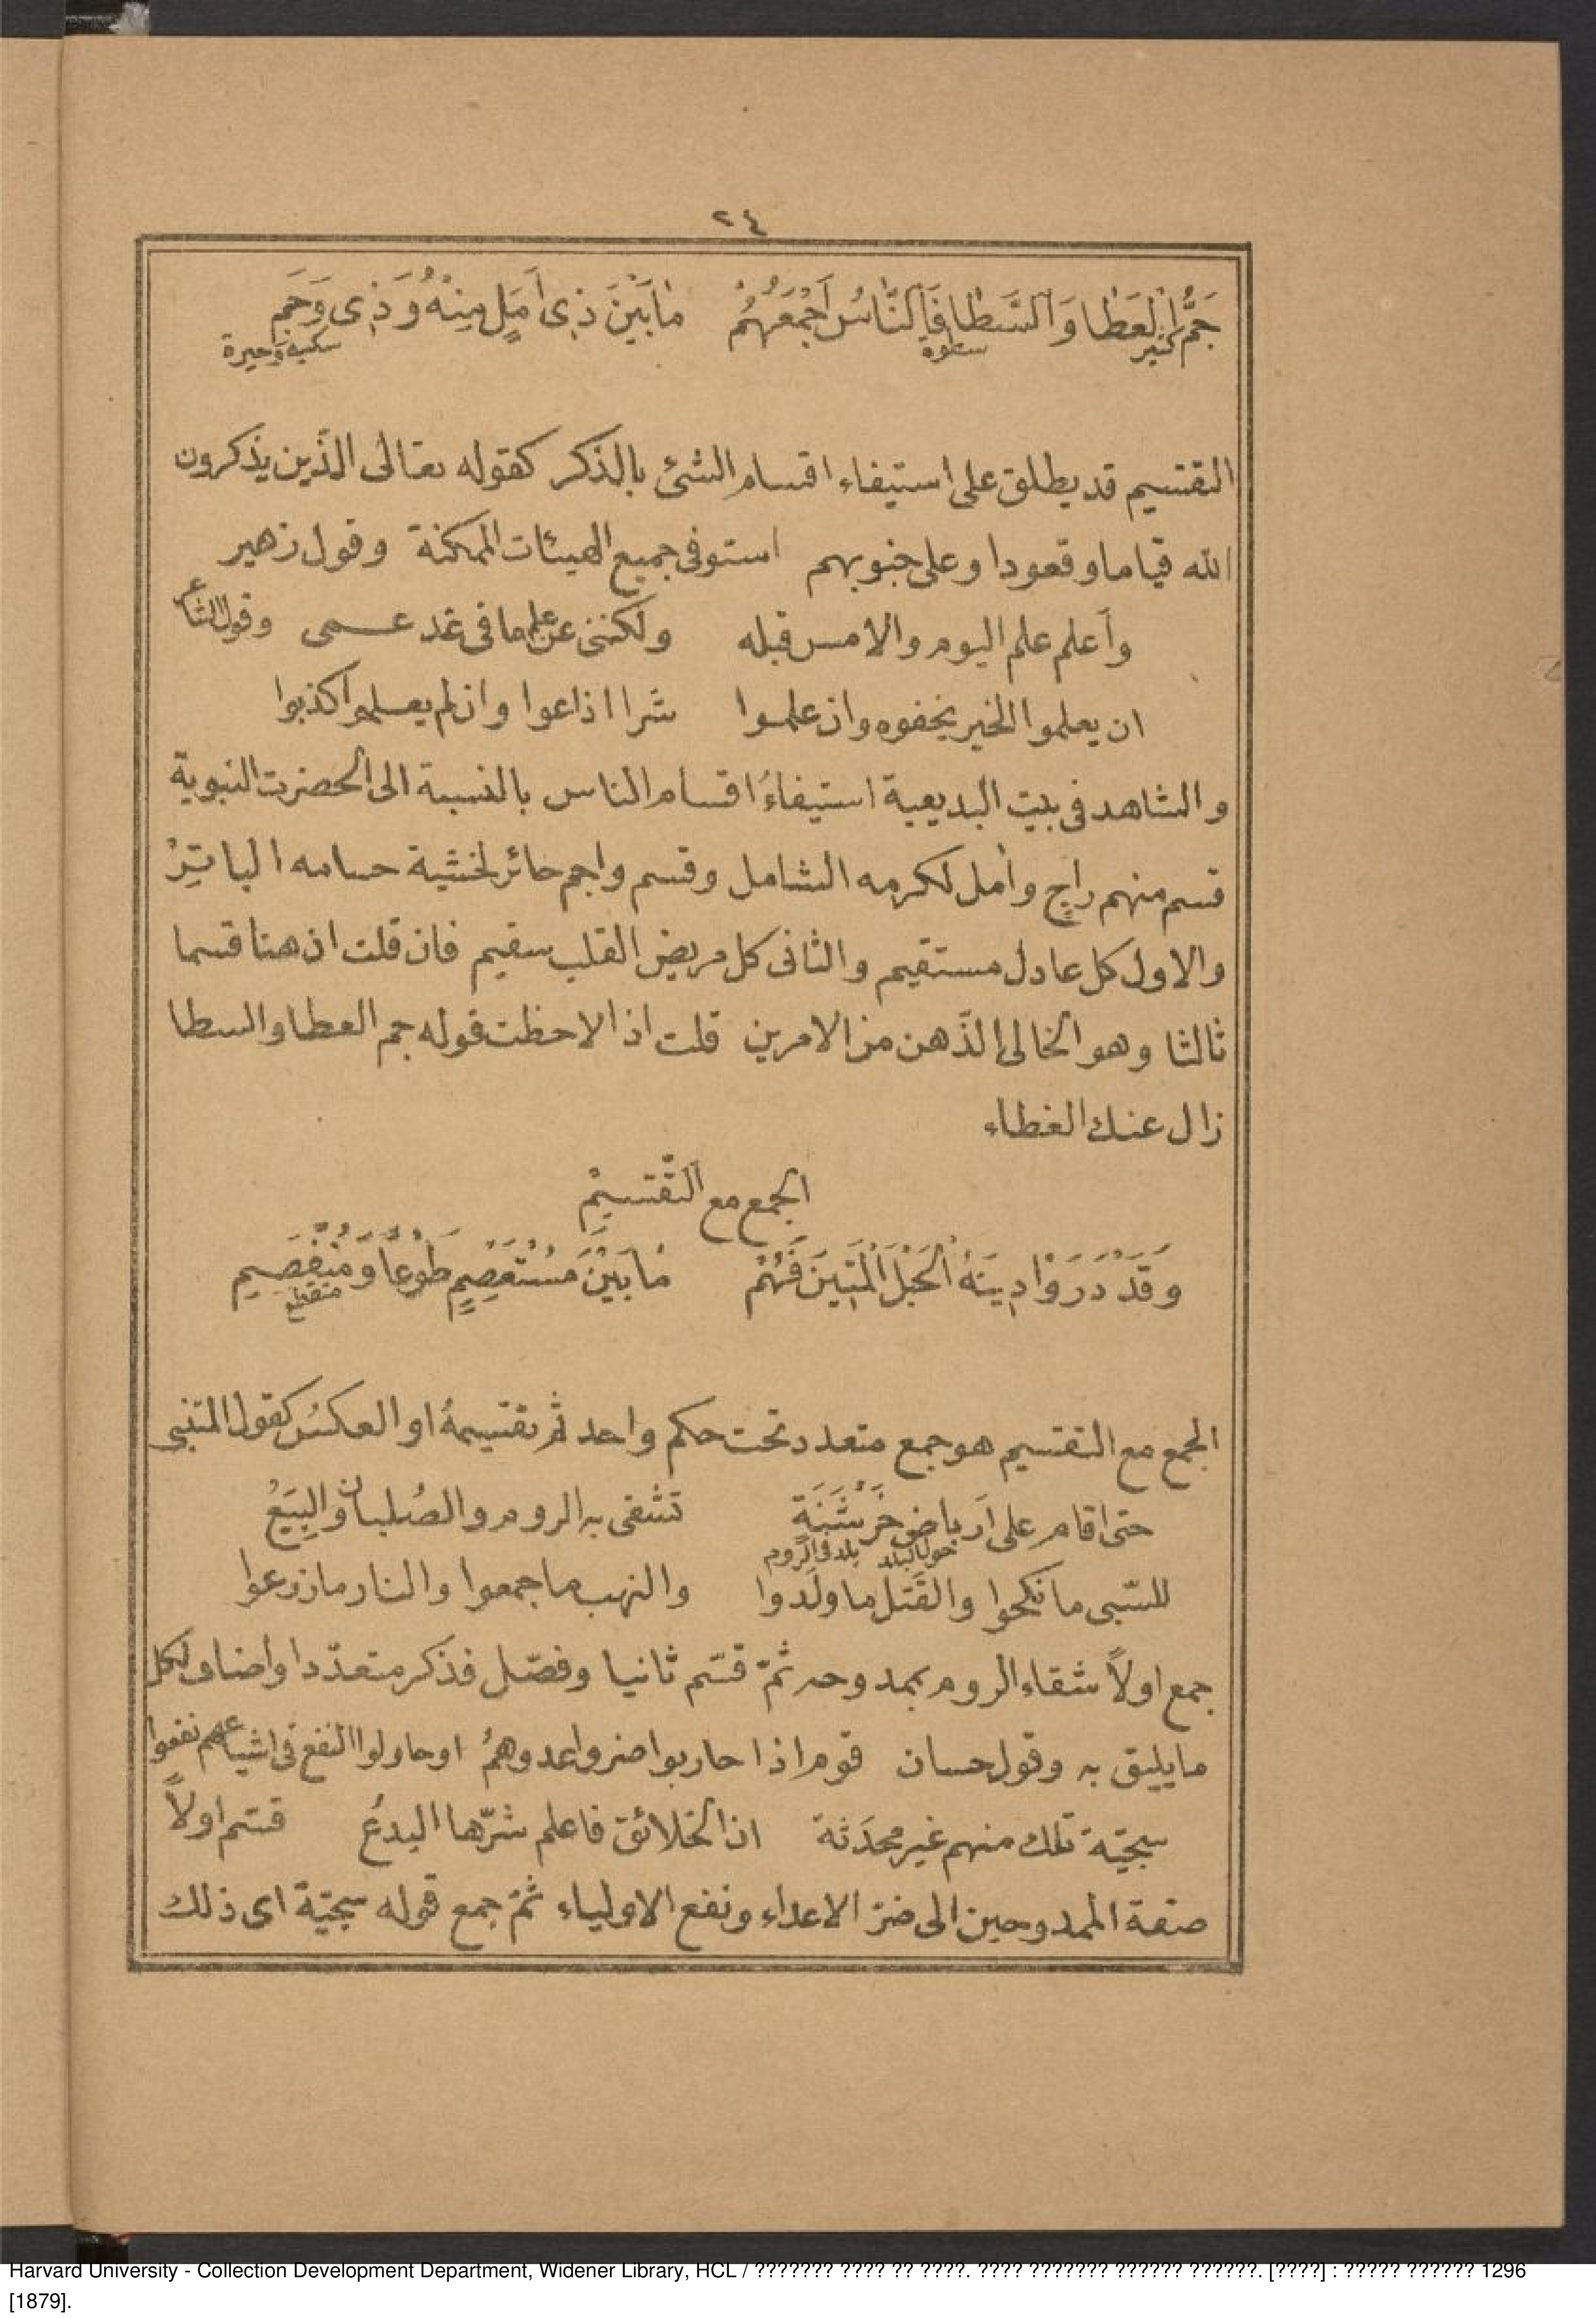 ٢٤
جَمُّ الْعَطَا وَالسَّطَا فَالنَّاسُ أَجْمَعُهُمْ مَا بَيْنَ ذِى أَمَلٍ مِنْهُ وَذِى وَجَمِ
كثير سطوه سكبة وحيرة
التقسيم قد يطلق على استيفاء اقسام الشئ بالذكر كقوله تعالى الذّين يذكرون
الله قياما وقعودا وعلى جنوبهم استوفى جميع الهيئات الممكنة وقول زهير
وأعلم علم اليوم والامس قبله ولكننى عن علم ما فى غد عمى وقول الشاعر
ان يعلموا الخير يخفوه وان علموا شرا اذاعوا وان لم يعلموا كذبوا
والشاهد فى بيت البديعية استيفاءُ اقسام الناس بالنسبة الى الحضرت النبوية
قسم منهم راجٍ وأمل لكرمه الشامل وقسم واجم حائر لخشية حسامه الباتِرْ
والاول كل عادل مستقيم والثانى كل مريض القلب سقيم فان قلت ان هنا قسما
ثالثا وهو الخالى الذّهن من الامرين قلت اذا لاحظت قوله جم العطا والسطا
زال عنك الغطاء
الجمع مع التَّقسيمْ
وَقَدْ دَرَوْا دِينَهُ الْحَبْلَ الْمَتِينَ فَهُمْ مَا بَيْنَ مُسْتَعْصِمٍ طَوْعًا وَمُنْفَصِمِ
منقطع
الجمع مع التقسيم هو جمع متعدد تحت حكم واحد ثم تقسيمهُ او العكسُ كقول المتنبى
حتى اقام على أرباض خَرْشَنَةٍ تشقى به الروم والصُلبان والبِيَعُ
حول البلد بلد فى الروم
للسّبى ما نكحوا والقَتل ما ولَدوا والنهب ما جمعوا والنار ما زرعوا
جمع اولاً شقاء الروم بممدوحه ثمّ قسّم ثانيا وفصّل فذكر متعدّدا واضاف لكل
ما يليق به وقول حسان قوم اذا حاربوا ضروا عدوهمُ او حاولوا النفع فى اشياعهم نفعوا
سجيّة تلك منهم غير محدَثة ان الخلائق فاعلم شرّها البدعُ قسّم اولاً
صفة الممدوحين الى ضرّ الاعداء ونفع الاولياء ثمّ جمع قوله سجيّة اى ذلك
Harvard University - Collection Development Department, Widener Library, HCL / ??????? ???? ?? ????. ???? ??????? ?????? ??????. [????] : ????? ?????? 1296
[1879].